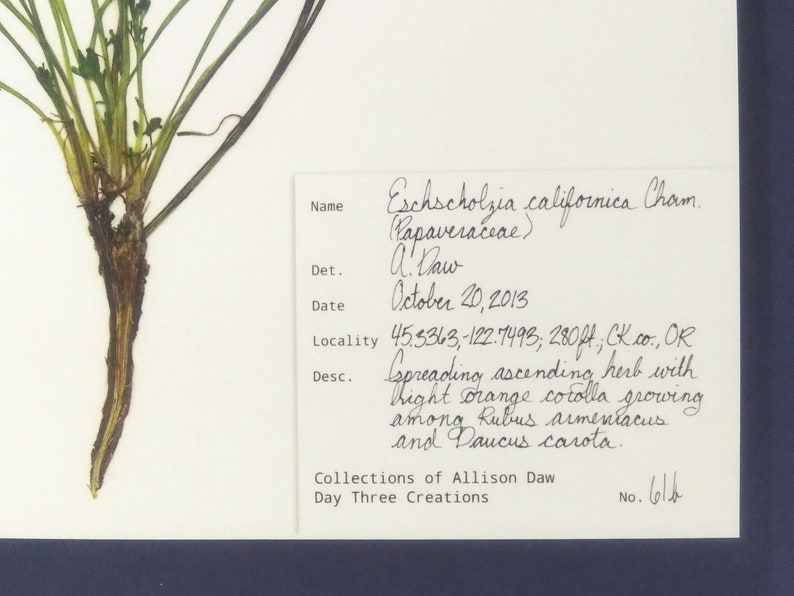 Name Eschscholzia californica Cham.
(Papaveraceae)
Det. A. Daw
Date October 20, 2013
Locality 45.3363,-122.7493; 280ft.; CK co., OR
Desc. Spreading ascending herb with
bright orange corolla growing
among Rubus armeniacus
and Daucus carota.
Collections of Allison Daw
Day Three Creations No. 61b